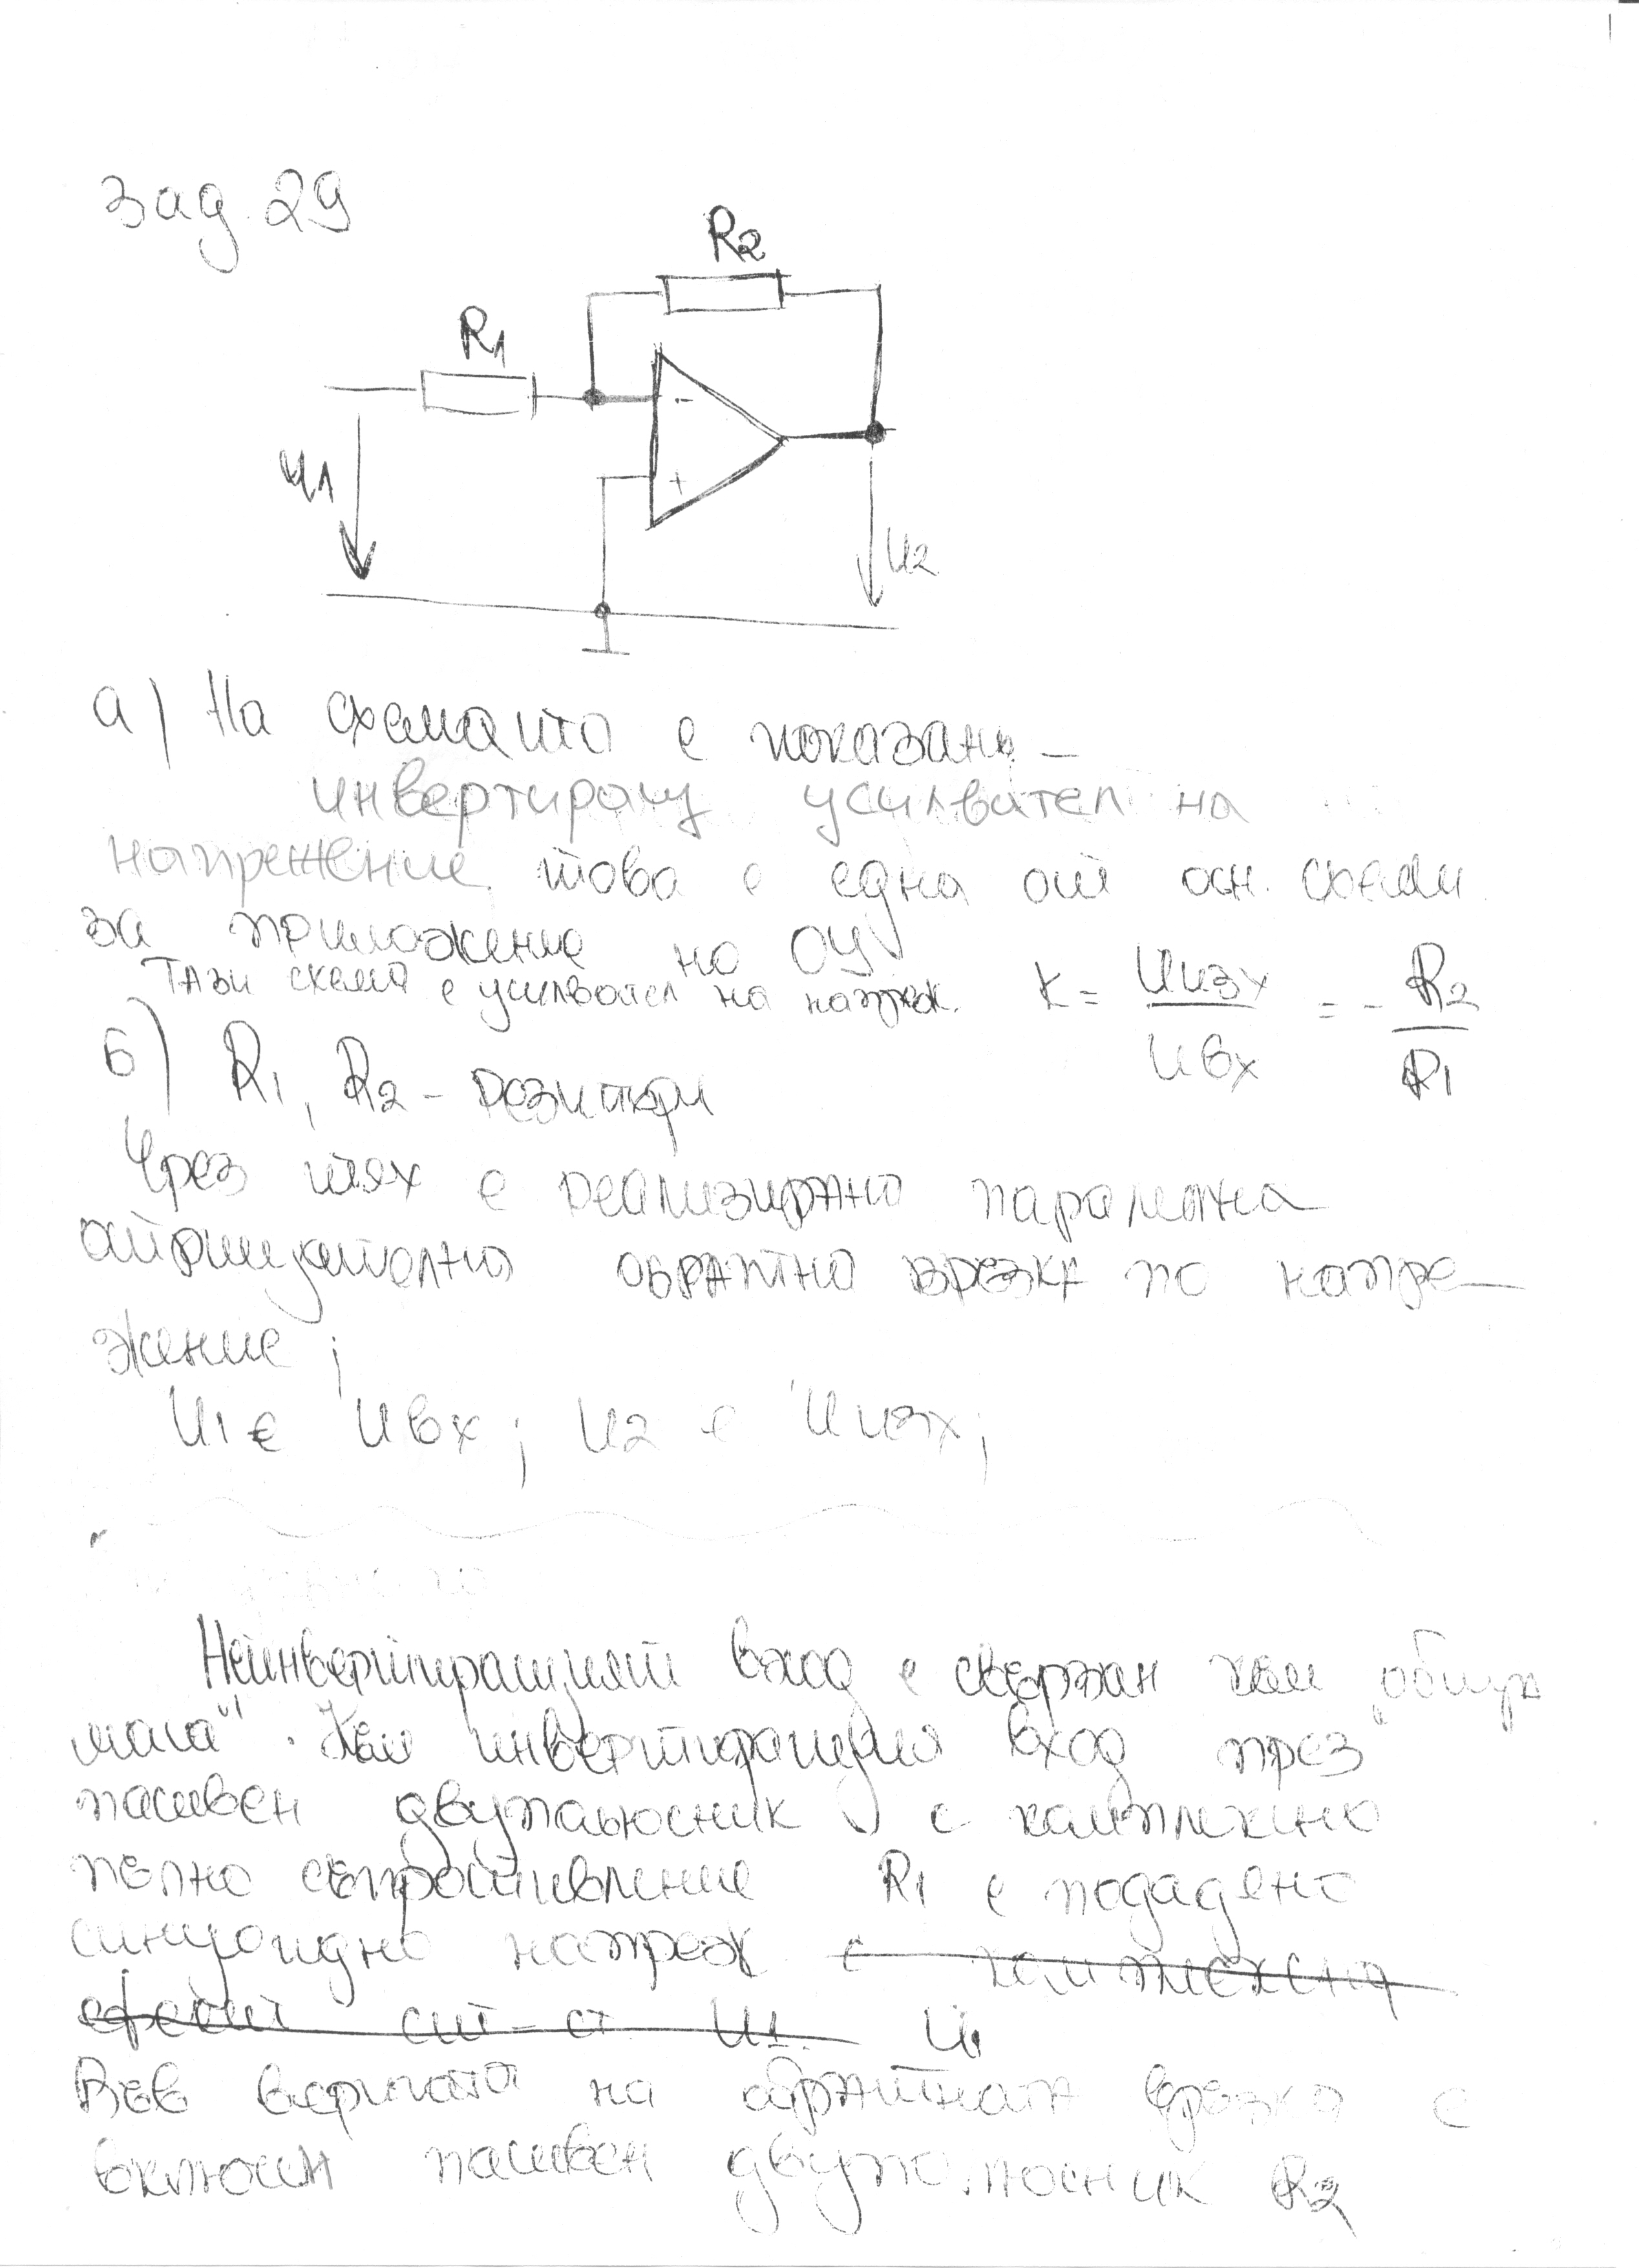 зад. 29
R2
R1
-
+
U1
U2
а) На схемата е показано -
инвертиращ усилвател на
напрежение. това е една от осн. схеми
за приложение на ОУ
Тази схема е усилвател на напреж. K = Uизх / Uвх = - R2 / R1
б) R1, R2 - резистори
Чрез тях е реализирано паралелна
отрицателна обратна връзка по напре-
жение;
U1 е Uвх; U2 е Uизх;
Неинвертиращият вход е свързан към „общук
маса". Към инвертиращия вход през
пасивен двуполюсник с комплексно
пълно съпротивление R1 е подадено
синусоидно напреж с комплексна
ефект ст-ст U1 U1
Във веригата на обратната връзка е
включен пасивен двуполюсник R2